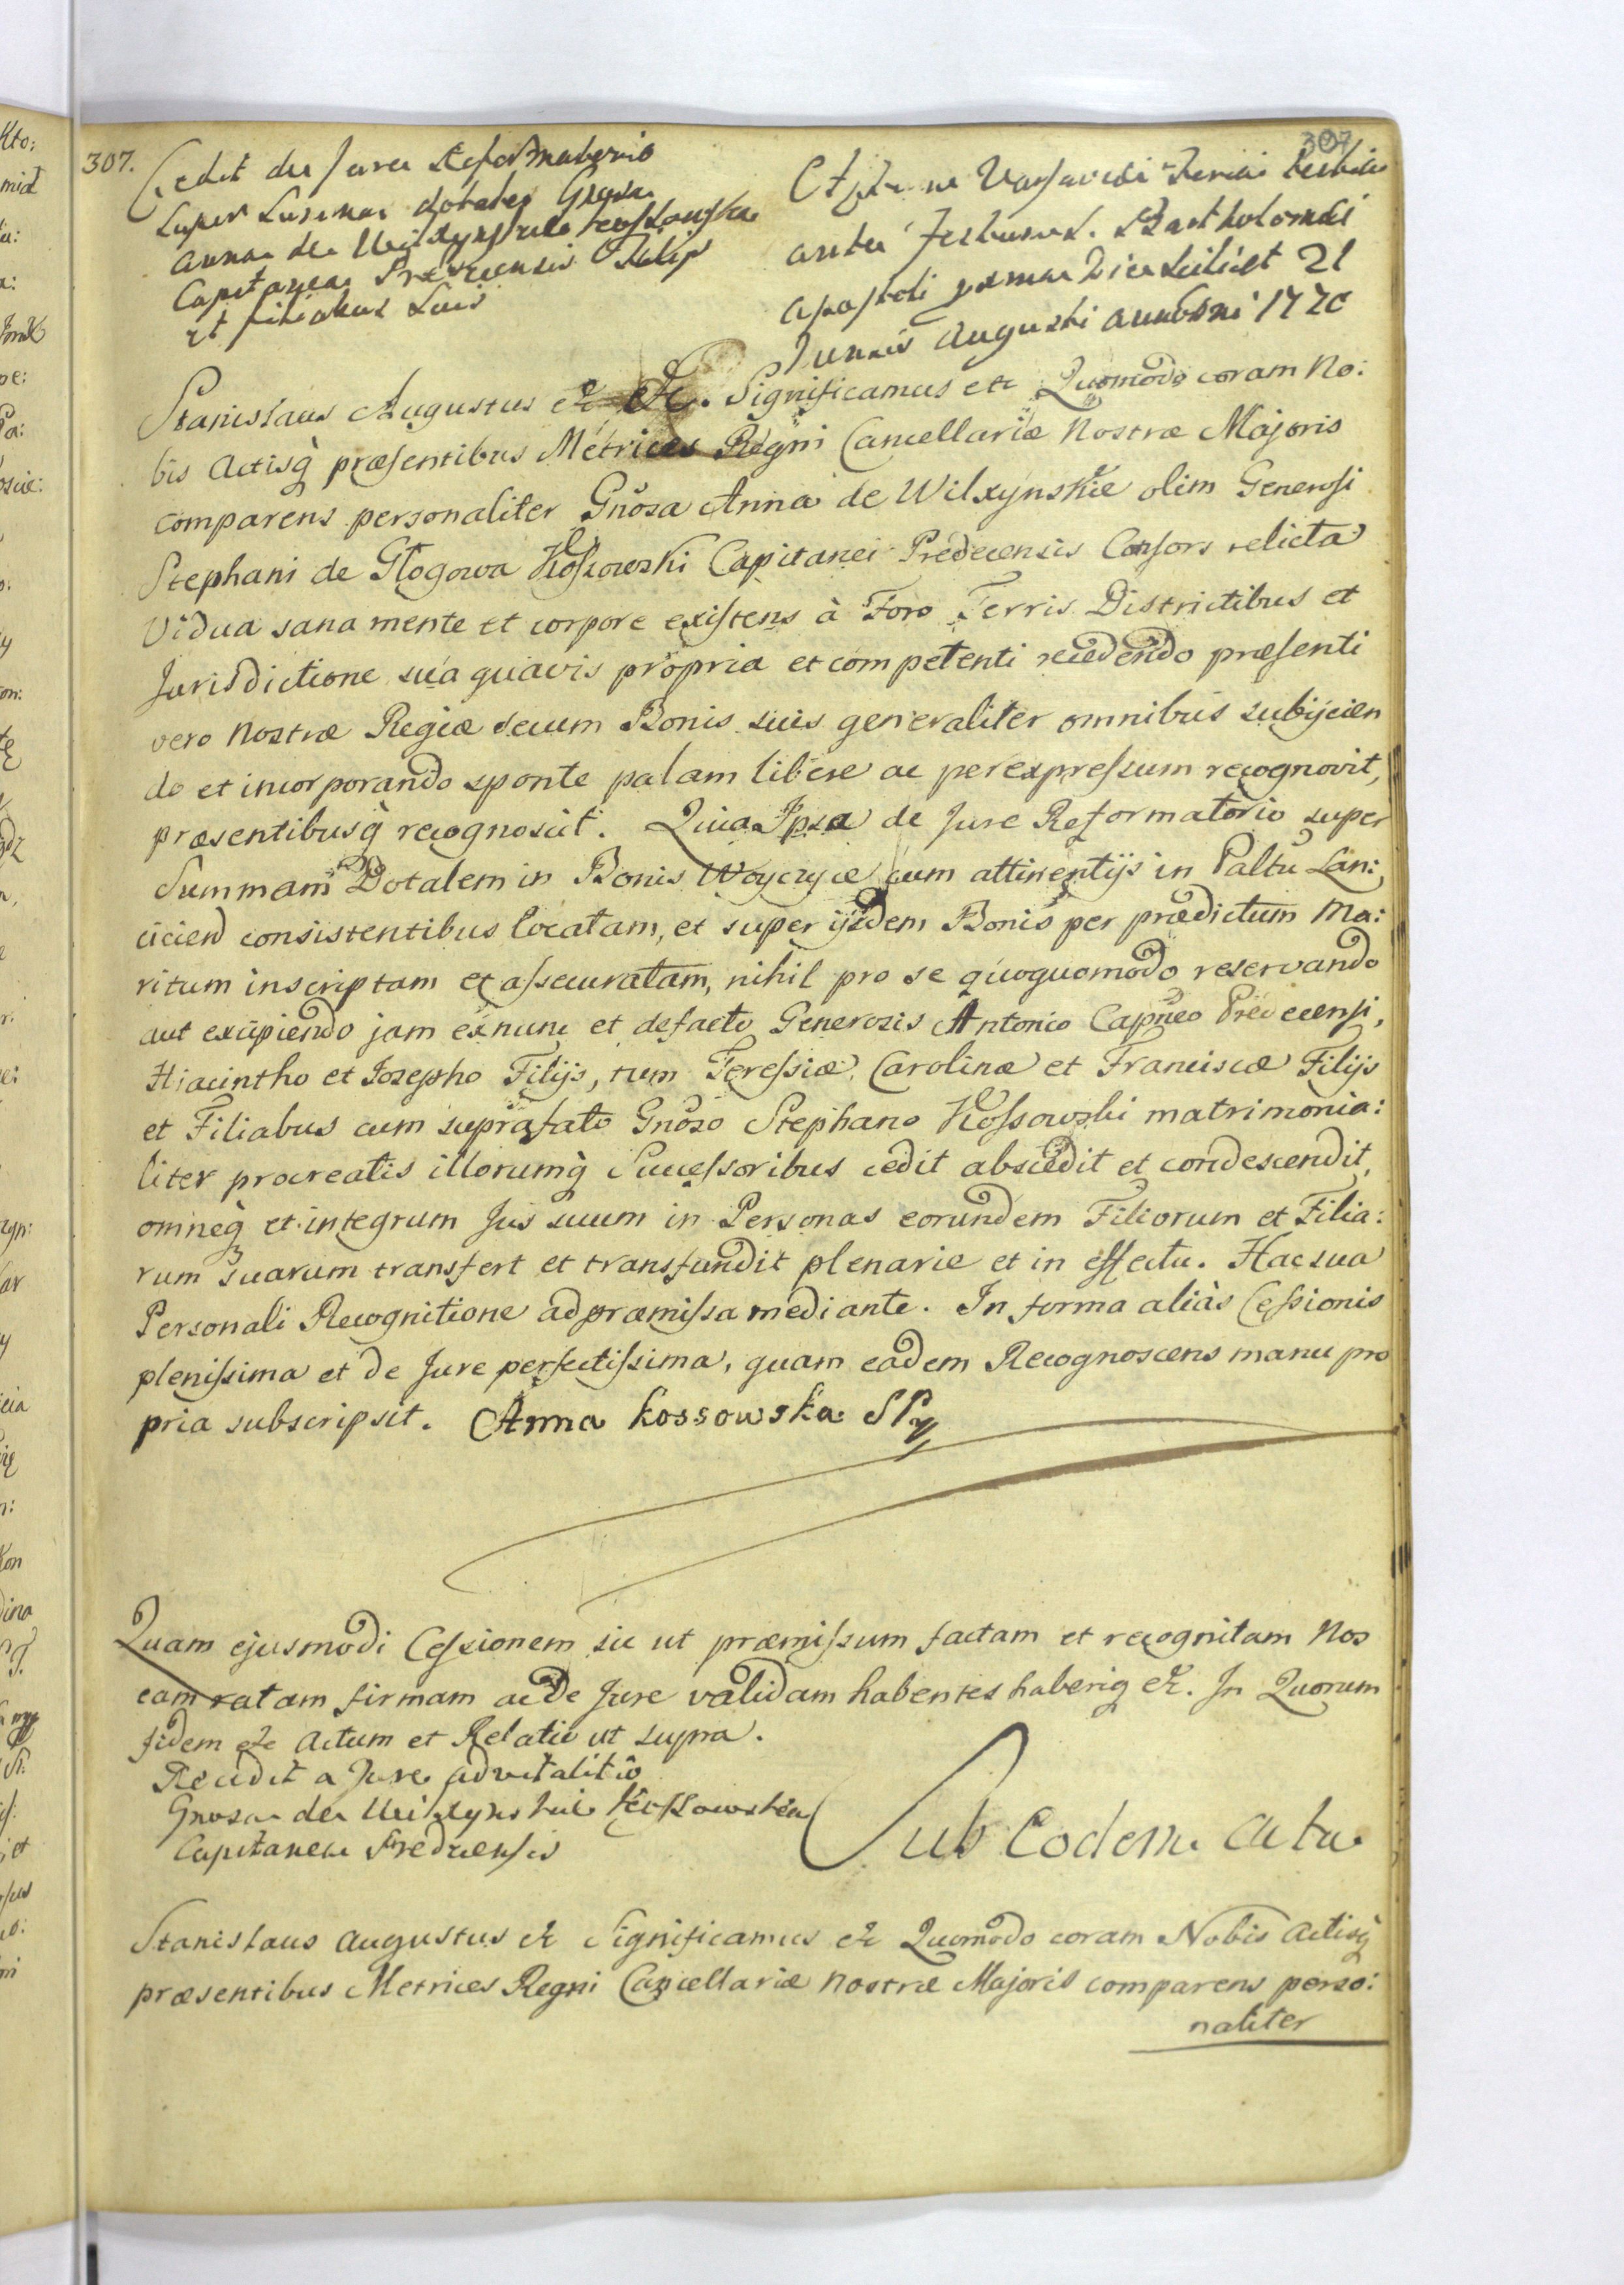 307.
307
Cedit de Jure Reformatorio
super Summa dotali Gnosa
Anna de Wilxynskie Kossowska
Capitanea Predecensis Filijs
et filiabus suis
Actum Varsaviæ Feria
ante Festum S. Bartholomæi
Apostoli proxima Die scilicet 21
Mensis Augusti Anno Dni
Stanislaus Augustus &c &c. Significamus etc Quomodo coram No:
bis Actisq̀ præsentibus Metrices Regni Cancellariæ Nostræ Majoris
comparens personaliter Gnosa Anna de Wilxynskie olim Generosi
Stephani de Głogowa Kossowski Capitanei Predecensis Consors relicta
Vidua sana mente et corpore existens à Foro Terris Districtibus et
Jurisdictione sua quavis propria et competenti recedendo præsenti
vero Nostræ Regiæ secum Bonis suis generaliter omnibus subijcien
do et incorporando sponte palam libere ac per expressum recognovit,
præsentibusq̀ recognoscit. Quia Ipsa de Jure Reformatorio super
Summam Dotalem in Bonis Woyczyce cum attinentijs in Paltu Lan:
ciciens consistentibus locatam, et super ijsdem Bonis per prædictum Ma:
ritum inscriptam et assecuratam, nihil pro se quoquomodo reservando
aut excipiendo jam exnunc et defacto Generosis Antonio Capneo Predecensi,
Hiacintho et Josepho Filijs, tum Teressiæ, Carolinæ et Franciscæ Filijs
et Filiabus cum suprafato Gnoso Stephano Kossowski matrimonia:
liter procreatis illorumq̀ Successoribus cedit abscedit et condescendit,
omneq̀ et integrum Jus suum in Personas eorundem Filiorum et Filia:
rum suarum transfert et transfundit plenarie et in effectu. Hac sua
Personali Recognitione ad præmissa mediante. In forma aliàs Cessionis
plenissima et de Jure perfectissima, quam eadem Recognoscens manu pro
pria subscripsit. Anna Kossowska SP
Quam ejusmodi Cessionem sic ut præmissum factam et recognitam Nos
eam ratam firmam ac de Jure validam habentes haberiq &c. In Quorum
fidem etc Actum et Relatio ut supra.
Recedit a Jure advitalitio
Gnosa de Wilxynskie Kossowska
Capitanea Predecensis
Sub Eodem Actu
Stanislaus Augustus &c Significamus &c Quomodo coram Nobis Actisq̀
præsentibus Metrices Regni Cancellariæ Nostræ Majoris comparens perso:
naliter